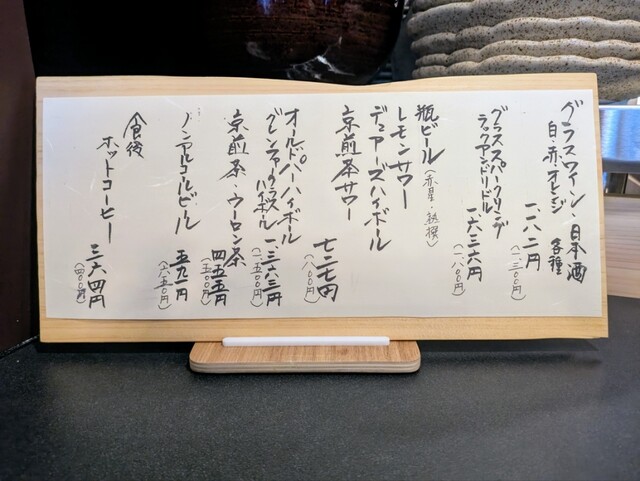 グラスワイン・日本酒
白・赤・オレンジ 各種
一、一八二円
(一、三〇〇円)
グラススパークリング
ラックアンドリドル
一、六三六円
(一、八〇〇円)
瓶ビール(赤星・熟撰)
レモンサワー
デュアーズハイボール
京煎茶サワー
七二七円
(八〇〇円)
オールドパーハイボール
グレンファークラスハイボール
一、三六三円
(一、五〇〇円)
京煎茶・ウーロン茶
四五五円
(五〇〇円)
ノンアルコールビール
五九一円
(六五〇円)
食後
ホットコーヒー
三六四円
(四〇〇円)